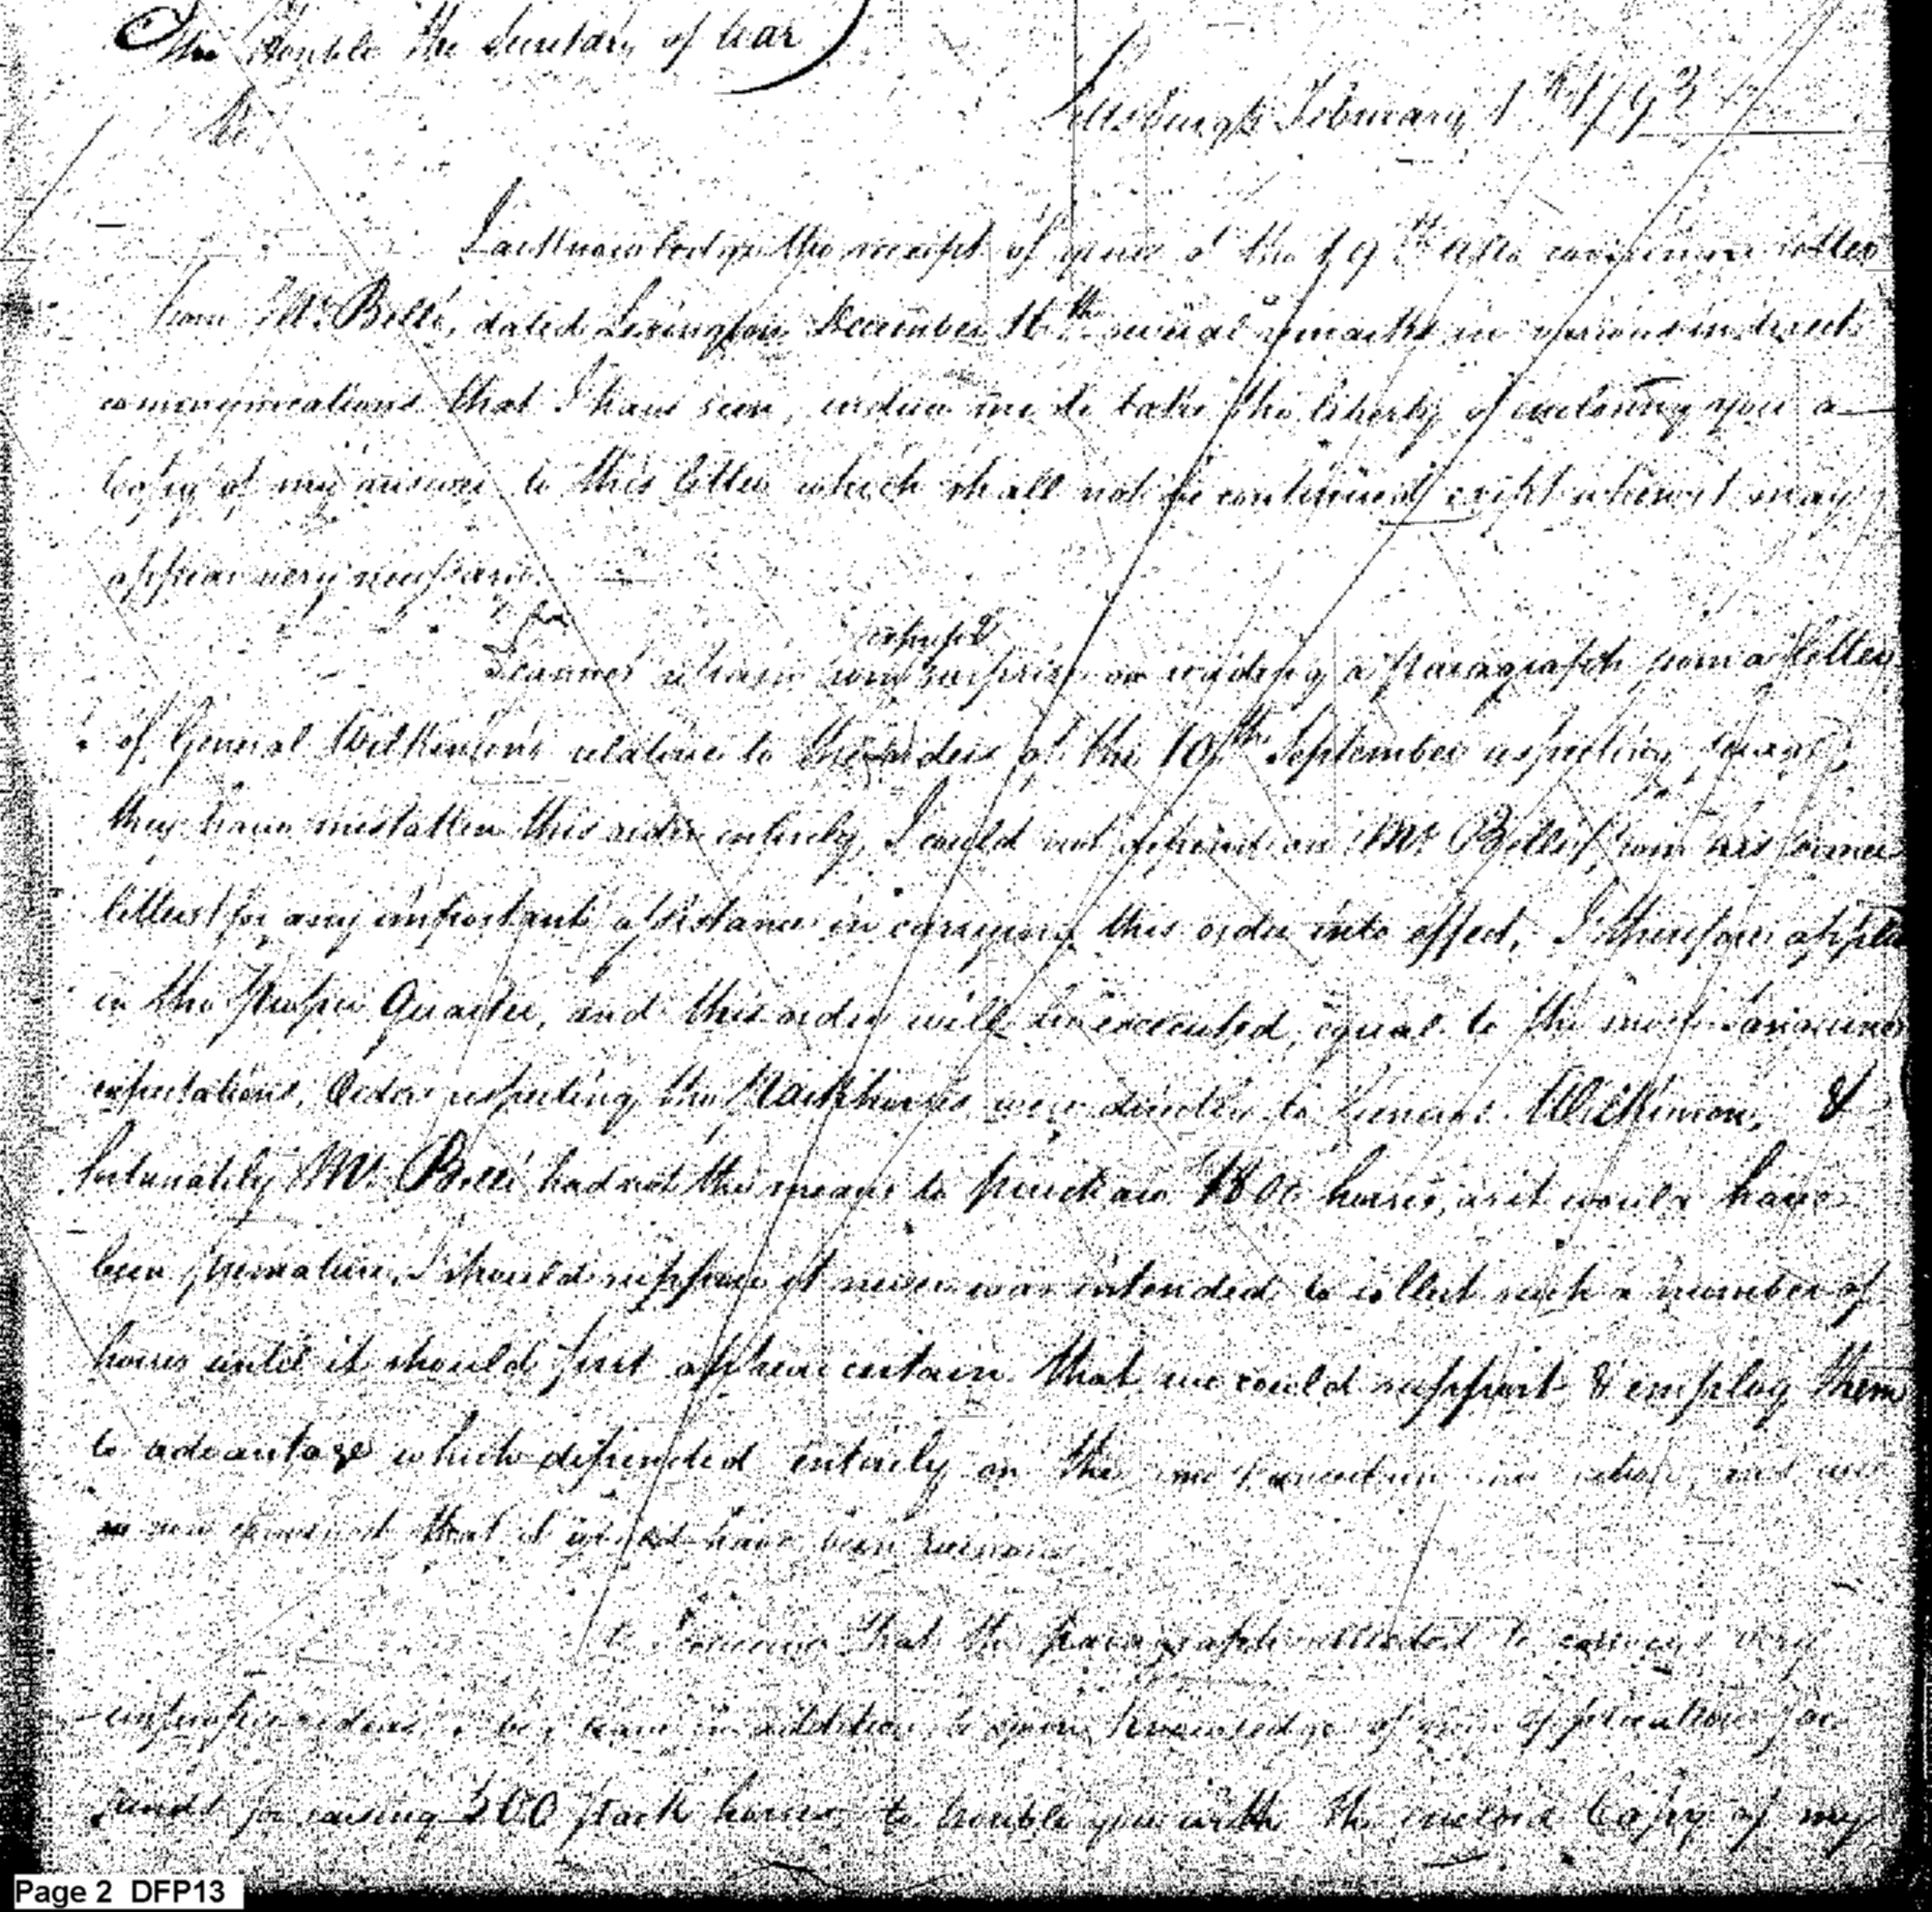 The Honble the Secretary of War
Pittsburgh February 1st 1793
Sir
I acknowledge the receipt of yours of the 19th Ulto covering letter
from Mr. Belli, dated Lexington December 16th several remarks in various indirect
communications that I have seen, induce me to take the liberty of enclosing you a
Copy of my answer to this letter which shall not be continued except where it may
appear very necessary.
express
I cannot refrain from surprise on reading a Paragraph from a letter
of General Wilkinson's relative to the orders of the 10th September respecting forage,
they have mistaken this order entirely, I could not depend on Mr Belli (from his former
letters) for any important assistance in carrying this order into effect, I therefore applied
in the Proper Quarter, and this order will be executed, equal to the most sanguine
expectations, Orders respecting the Packhorses were directed to General Wilkinson, &
fortunately Mr. Belli had not the means to purchase 1800 horses, as it would have
been premature, I should suppose it never was intended to collect such a number of
horses until it should first appear certain that we could support & employ them
to advantage which depended entirely on the
that it would have been ruinous
that the paragraph alluded to conveys very
improper ideas, I beg leave in addition to your knowledge of my applications for
funds for raising 300 pack horses to trouble you with the enclosed Copy of my
Page 2 DFP13